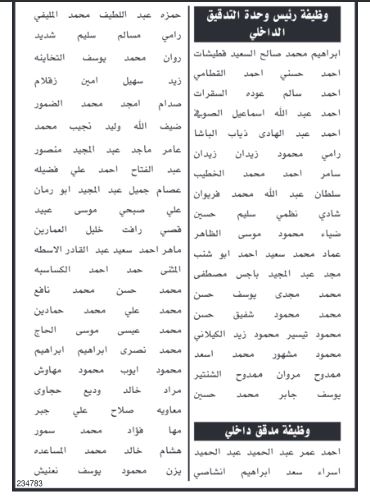 وظيفة رئيس وحدة التدقيق
الداخلي
ابراهيم محمد صالح السعيد قطيشات
احمد حسني احمد القطامي
احمد سالم عوده السقرات
احمد عبد الله اسماعيل الصوفي
احمد عبد الهادى ذياب الباشا
رامي محمود زيدان زيدان
سامر احمد محمد الخطيب
سلطان عبد الله محمد فريوان
شادي نظمي سليم حسين
ضياء محمود موسى الظاهر
عماد محمد سعيد احمد ابو شنب
مجد عبد المجيد باجس مصطفى
محمد مجدى يوسف حسن
محمد محمود شفيق حسن
محمود تيسير محمود زيد الكيلاني
محمود مشهور محمد اسعد
ممدوح مروان ممدوح الشنتير
يوسف جابر محمد حسين
وظيفة مدقق داخلي
احمد عمر عبد الحميد عبد الحميد
اسراء سعد ابراهيم انشاصي
حمزه عبد اللطيف محمد المليفي
رامي مسالم سليم شديد
روان محمد يوسف التخاينه
زيد سهيل امين زقلام
صدام امجد محمد الضمور
ضيف الله وليد نجيب محمد
عامر ماجد عبد المجيد منصور
عبد الفتاح احمد علي فضيله
عصام جميل عبد المجيد ابو رمان
علي صبحي موسى عبيد
قصي رافت خليل العمارين
ماهر احمد سعيد عبد القادر الاسطه
المثنى حمد احمد الكساسبه
محمد حسن محمد نافع
محمد علي محمد حمادين
محمد عيسى موسى الحاج
محمد نصرى ابراهيم ابراهيم
محمود ايوب محمود مهاوش
مراد خالد وديع حجاوى
معاويه صلاح علي جبر
مها فؤاد محمد سمور
هشام خالد محمد المساعده
يزن محمود يوسف نعنيش
234783